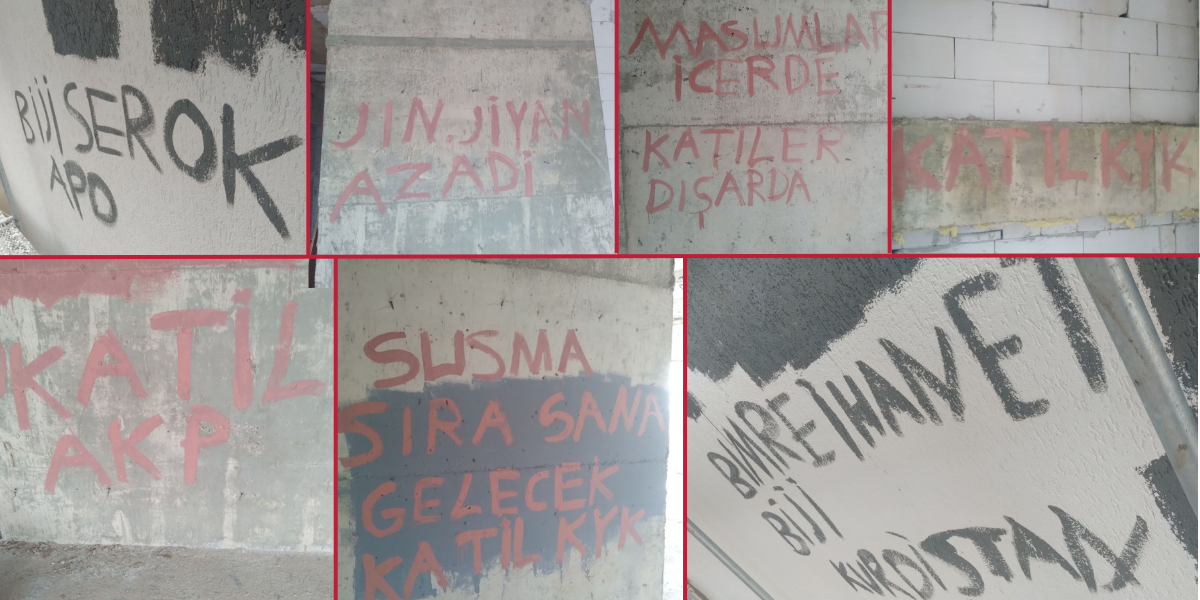 BIJI SEROK
APO
JIN.JİYAN
AZADİ
MASUMLAR
İCERDE
KATILER
DIŞARDA
KATİL KYK
KATİL
AKP
SUSMA
SIRA SANA
GELECEK
KATİL KYK
BIMRE IHANET
BIJI
KURDİSTAN